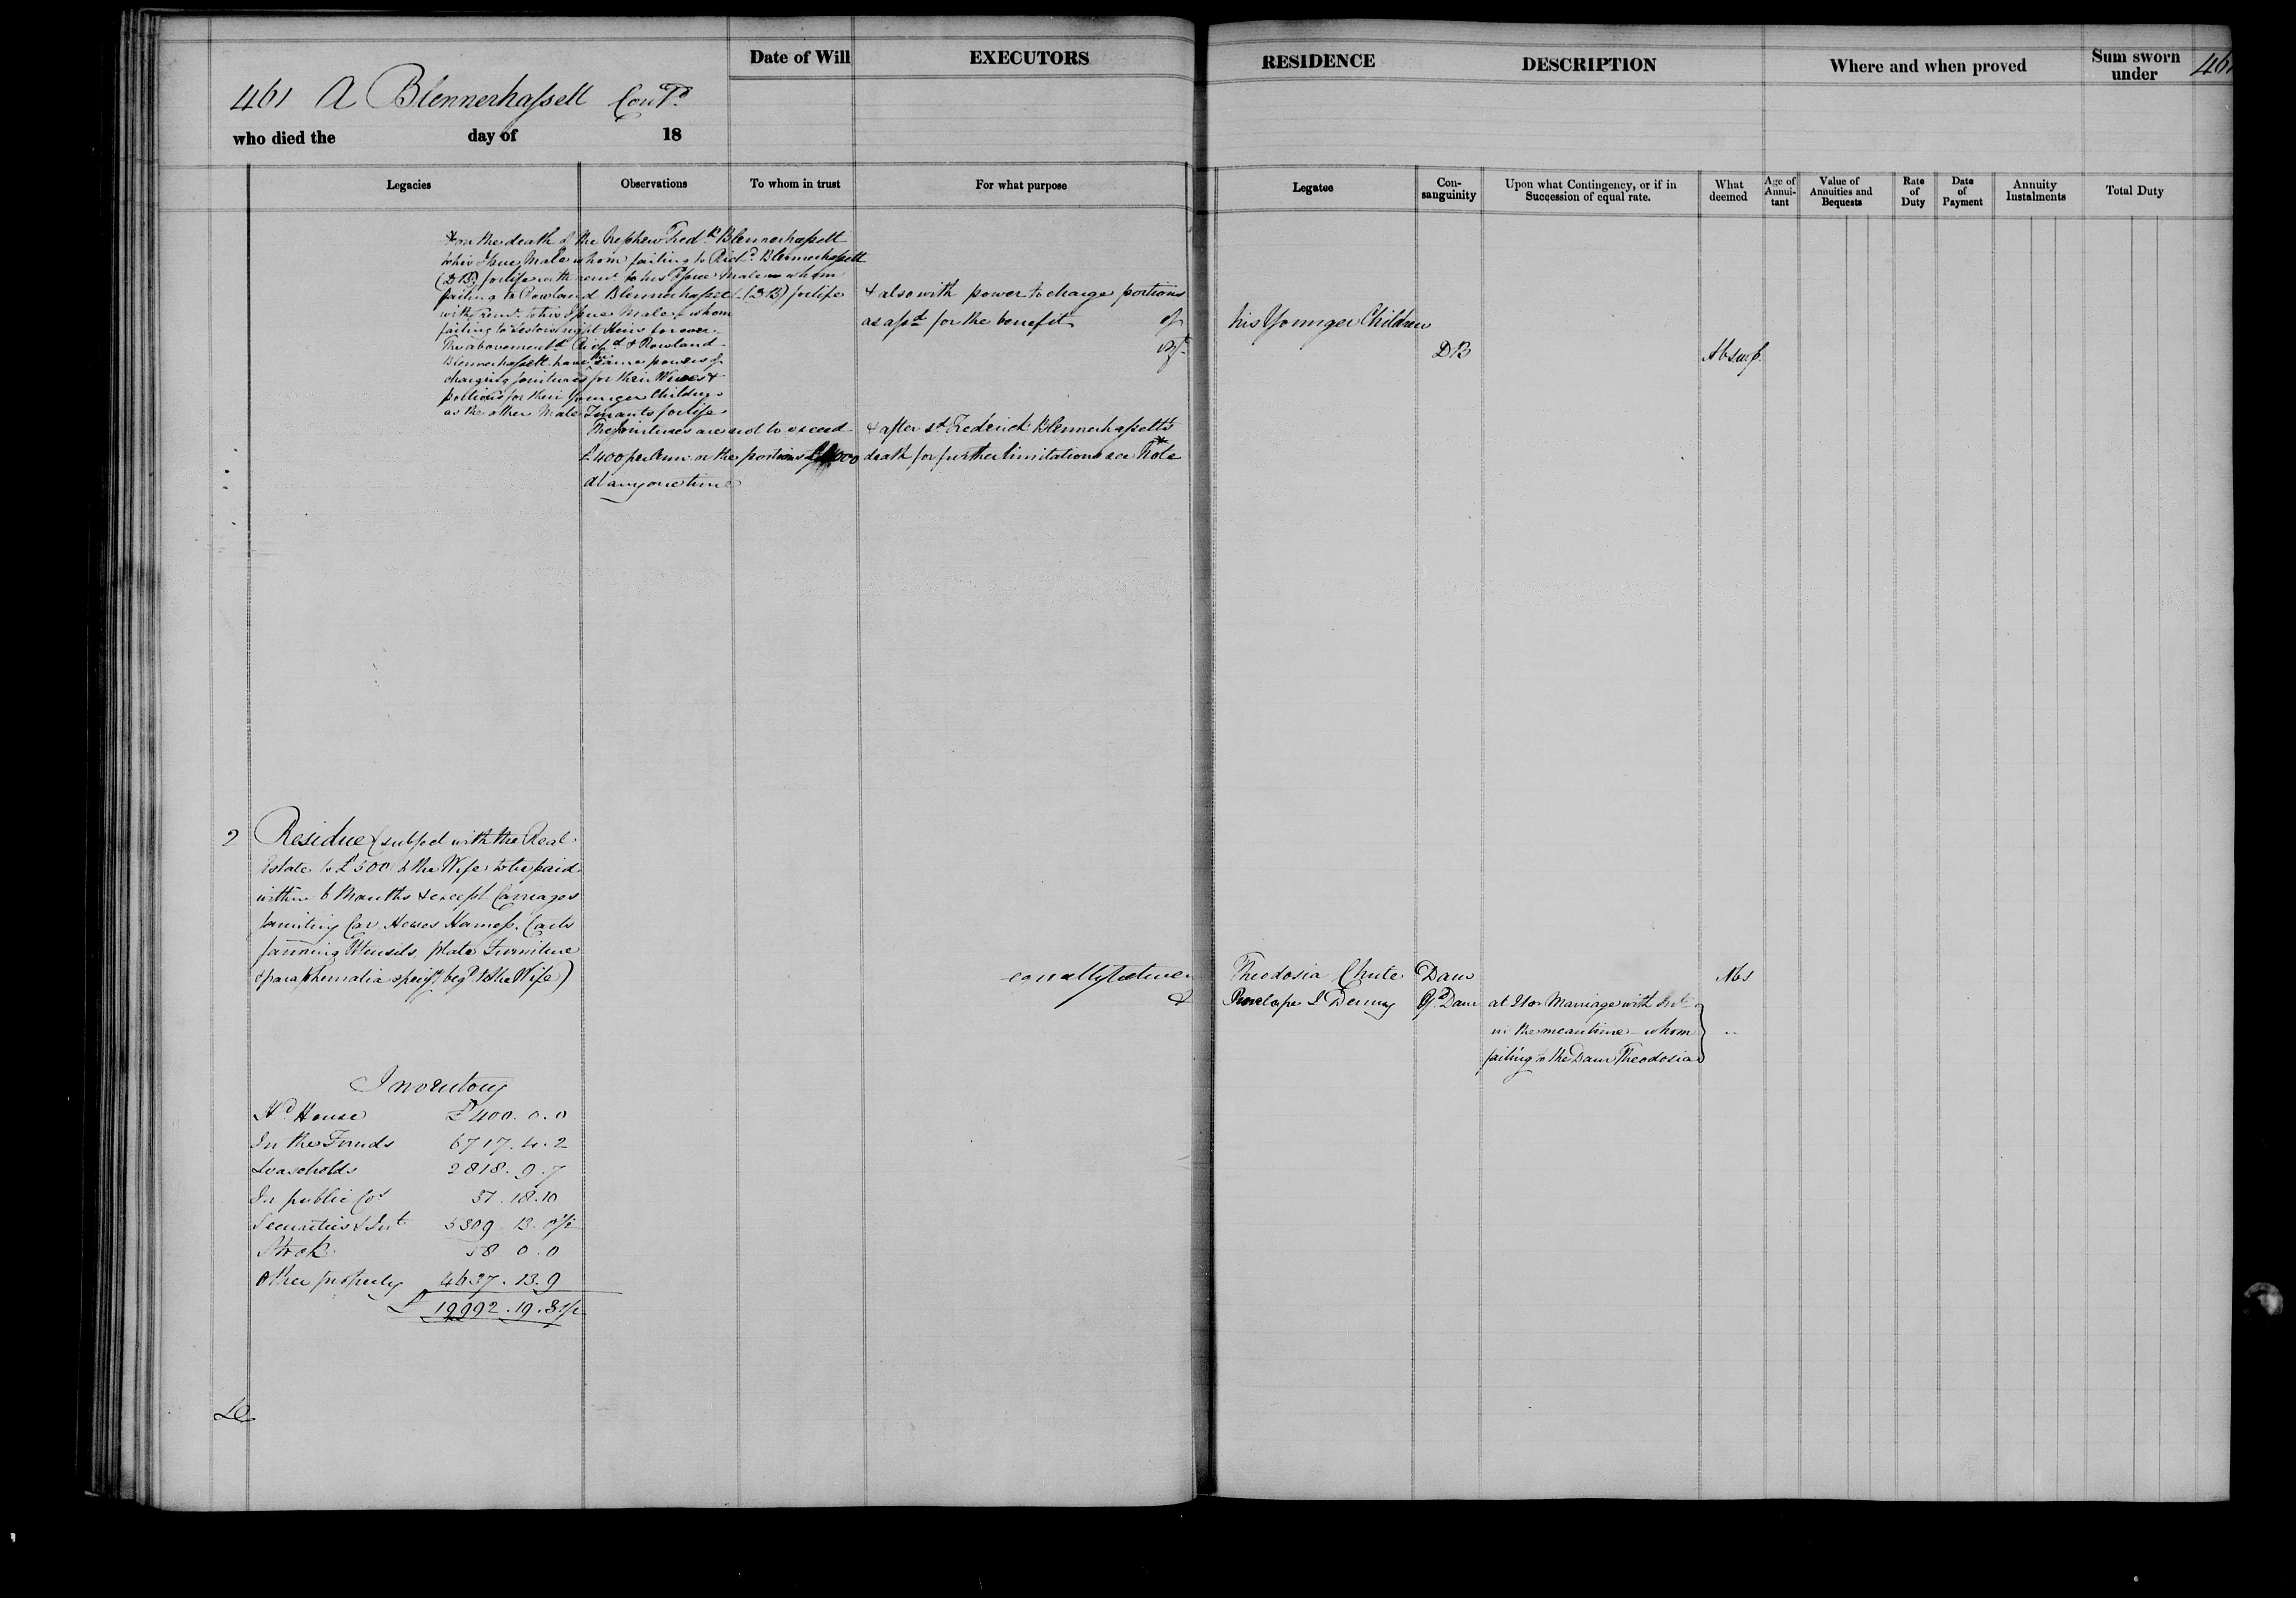 Date of Will
EXECUTORS
RESIDENCE
DESCRIPTION
Where and when proved
Sum sworn under
461
461 A Blennerhassett Contd.
who died the day of 18
Legacies
Observations
To whom in trust
For what purpose
Legatee
Con-sanguinity
Upon what Contingency, or if in Succession of equal rate.
What deemed
Age of Annui-tant
Value of Annuities and Bequests
Rate of Duty
Date of Payment
Annuity Instalments
Total Duty
* on the death of the Nephew Fredk. Blennerhassett
to his Issue Male whom failing to Richd. Blennerhassett
(DB) for life with remr. to his Issue Male whom
failing to Rowland Blennerhassett (DB) for life
with remr. to his Issue Male & whom
failing to Testors right Heirs for ever.
The abovementd. Richd. & Rowland
Blennerhassett have the same powers of
charging jointures for their Wives &
portions for their Younger Children
as the other Male Tenants for life
The jointures are not to exceed
£400 per Ann: or the portions 000
at any one time
& also with power to charge portions
as afsd. for the benefit of
his Younger Children
DB
Abs. w. p.
& after sd. Frederick Blennerhassett's
death for further limitations see * Note
2 Residue (subject with the Real
Estate to £500 to the Wife to be paid
within 6 Months & except Carriages
Car Horses Harness. Carts
farming Utensils, plate Furniture
& paraphernalia specify. beqd. to the Wife)
equally between
Theodosia Chute Daur
Abs
& Penelope I Denny Gd. Daur
at 21 or Marriage with Int.
in the meantime - whom
failing to the Daur Theodosia
"
Inventory
Hd. House £400. 0. 0
In the Funds 6717. 4. 2
Leaseholds 2818. 9. 7
In public Cos 51. 18. 10
Securities & Int. 5309 13. 0½
Stock 58 0. 0
Other property 4637. 13. 9
£ 19992. 19. 3½